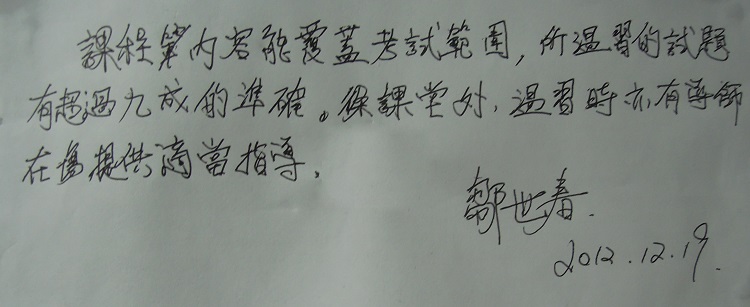 課程第內容能覆蓋考試範圍,所溫習的試題
有超過九成的準確。除課堂外,溫習時亦有導師
在場提供適當指導。
鄒世春.
2012.12.19.